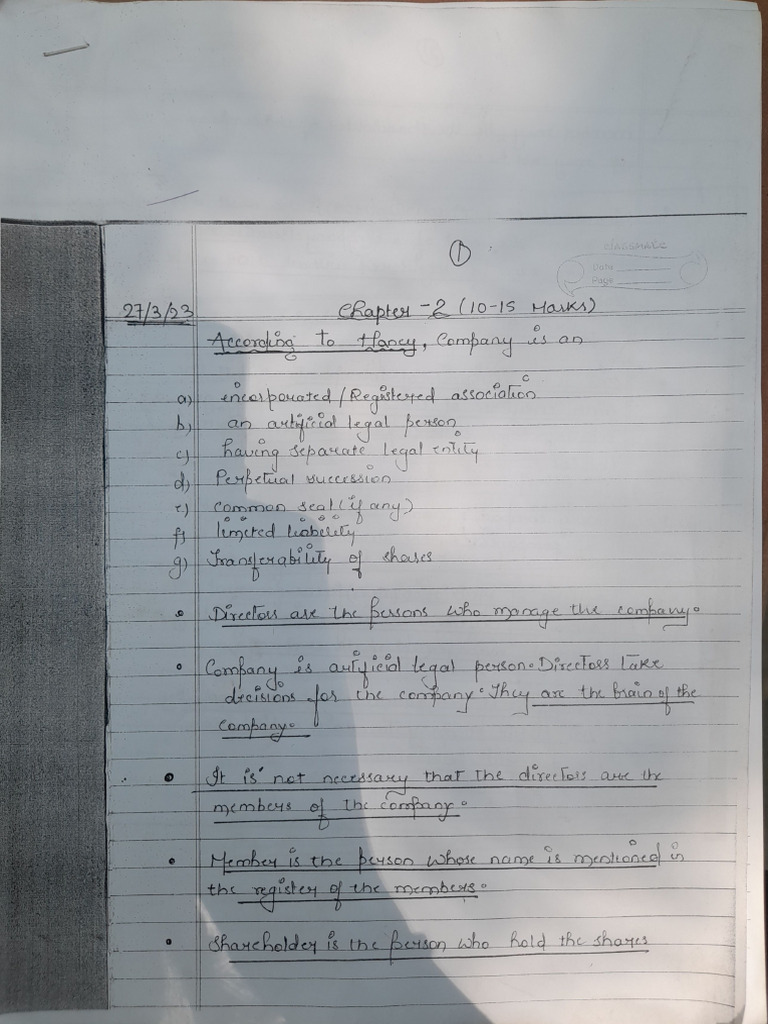 1
classmate
Date
Page
27/3/23 Chapter-2 (10-15 Marks)
According to Haney, Company is an
a) incorporated/Registered association
b) an artificial legal person
c) having separate legal entity
d) Perpetual succession
e) common seal (if any)
f) limited liability
g) Transferability of shares
• Directors are the persons who manage the company.
• Company is artificial legal person. Directors take
decisions for the company. They are the brain of the
company.
• It is not necessary that the directors are the
members of the company.
• Member is the person whose name is mentioned in
the register of the members.
• Shareholder is the person who hold the shares